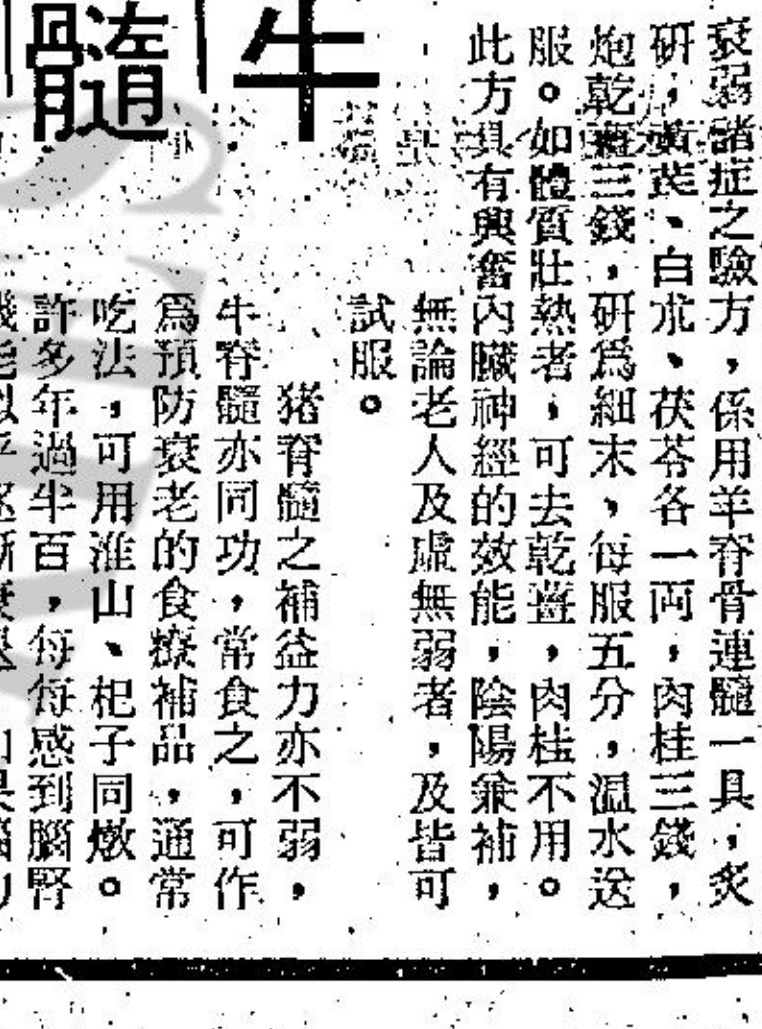 牛
髓
衰弱諸症之驗方，係用羊脊骨連髓一具，炙
研，黃芪、白朮、茯苓各一両，肉桂三錢，
炮乾薑三錢，研爲細末，每服五分，溫水送
服。如體質壯熱者，可去乾薑，肉桂不用。
此方具有興奮內臟神經的效能，陰陽兼補，
無論老人及虛無弱者，及皆可
試服。
猪脊髓之補益力亦不弱，
牛脊髓亦同功，常食之，可作
爲預防衰老的食療補品，通常
吃法，可用淮山、杞子同燉。
許多年過半百，每每感到腦腎